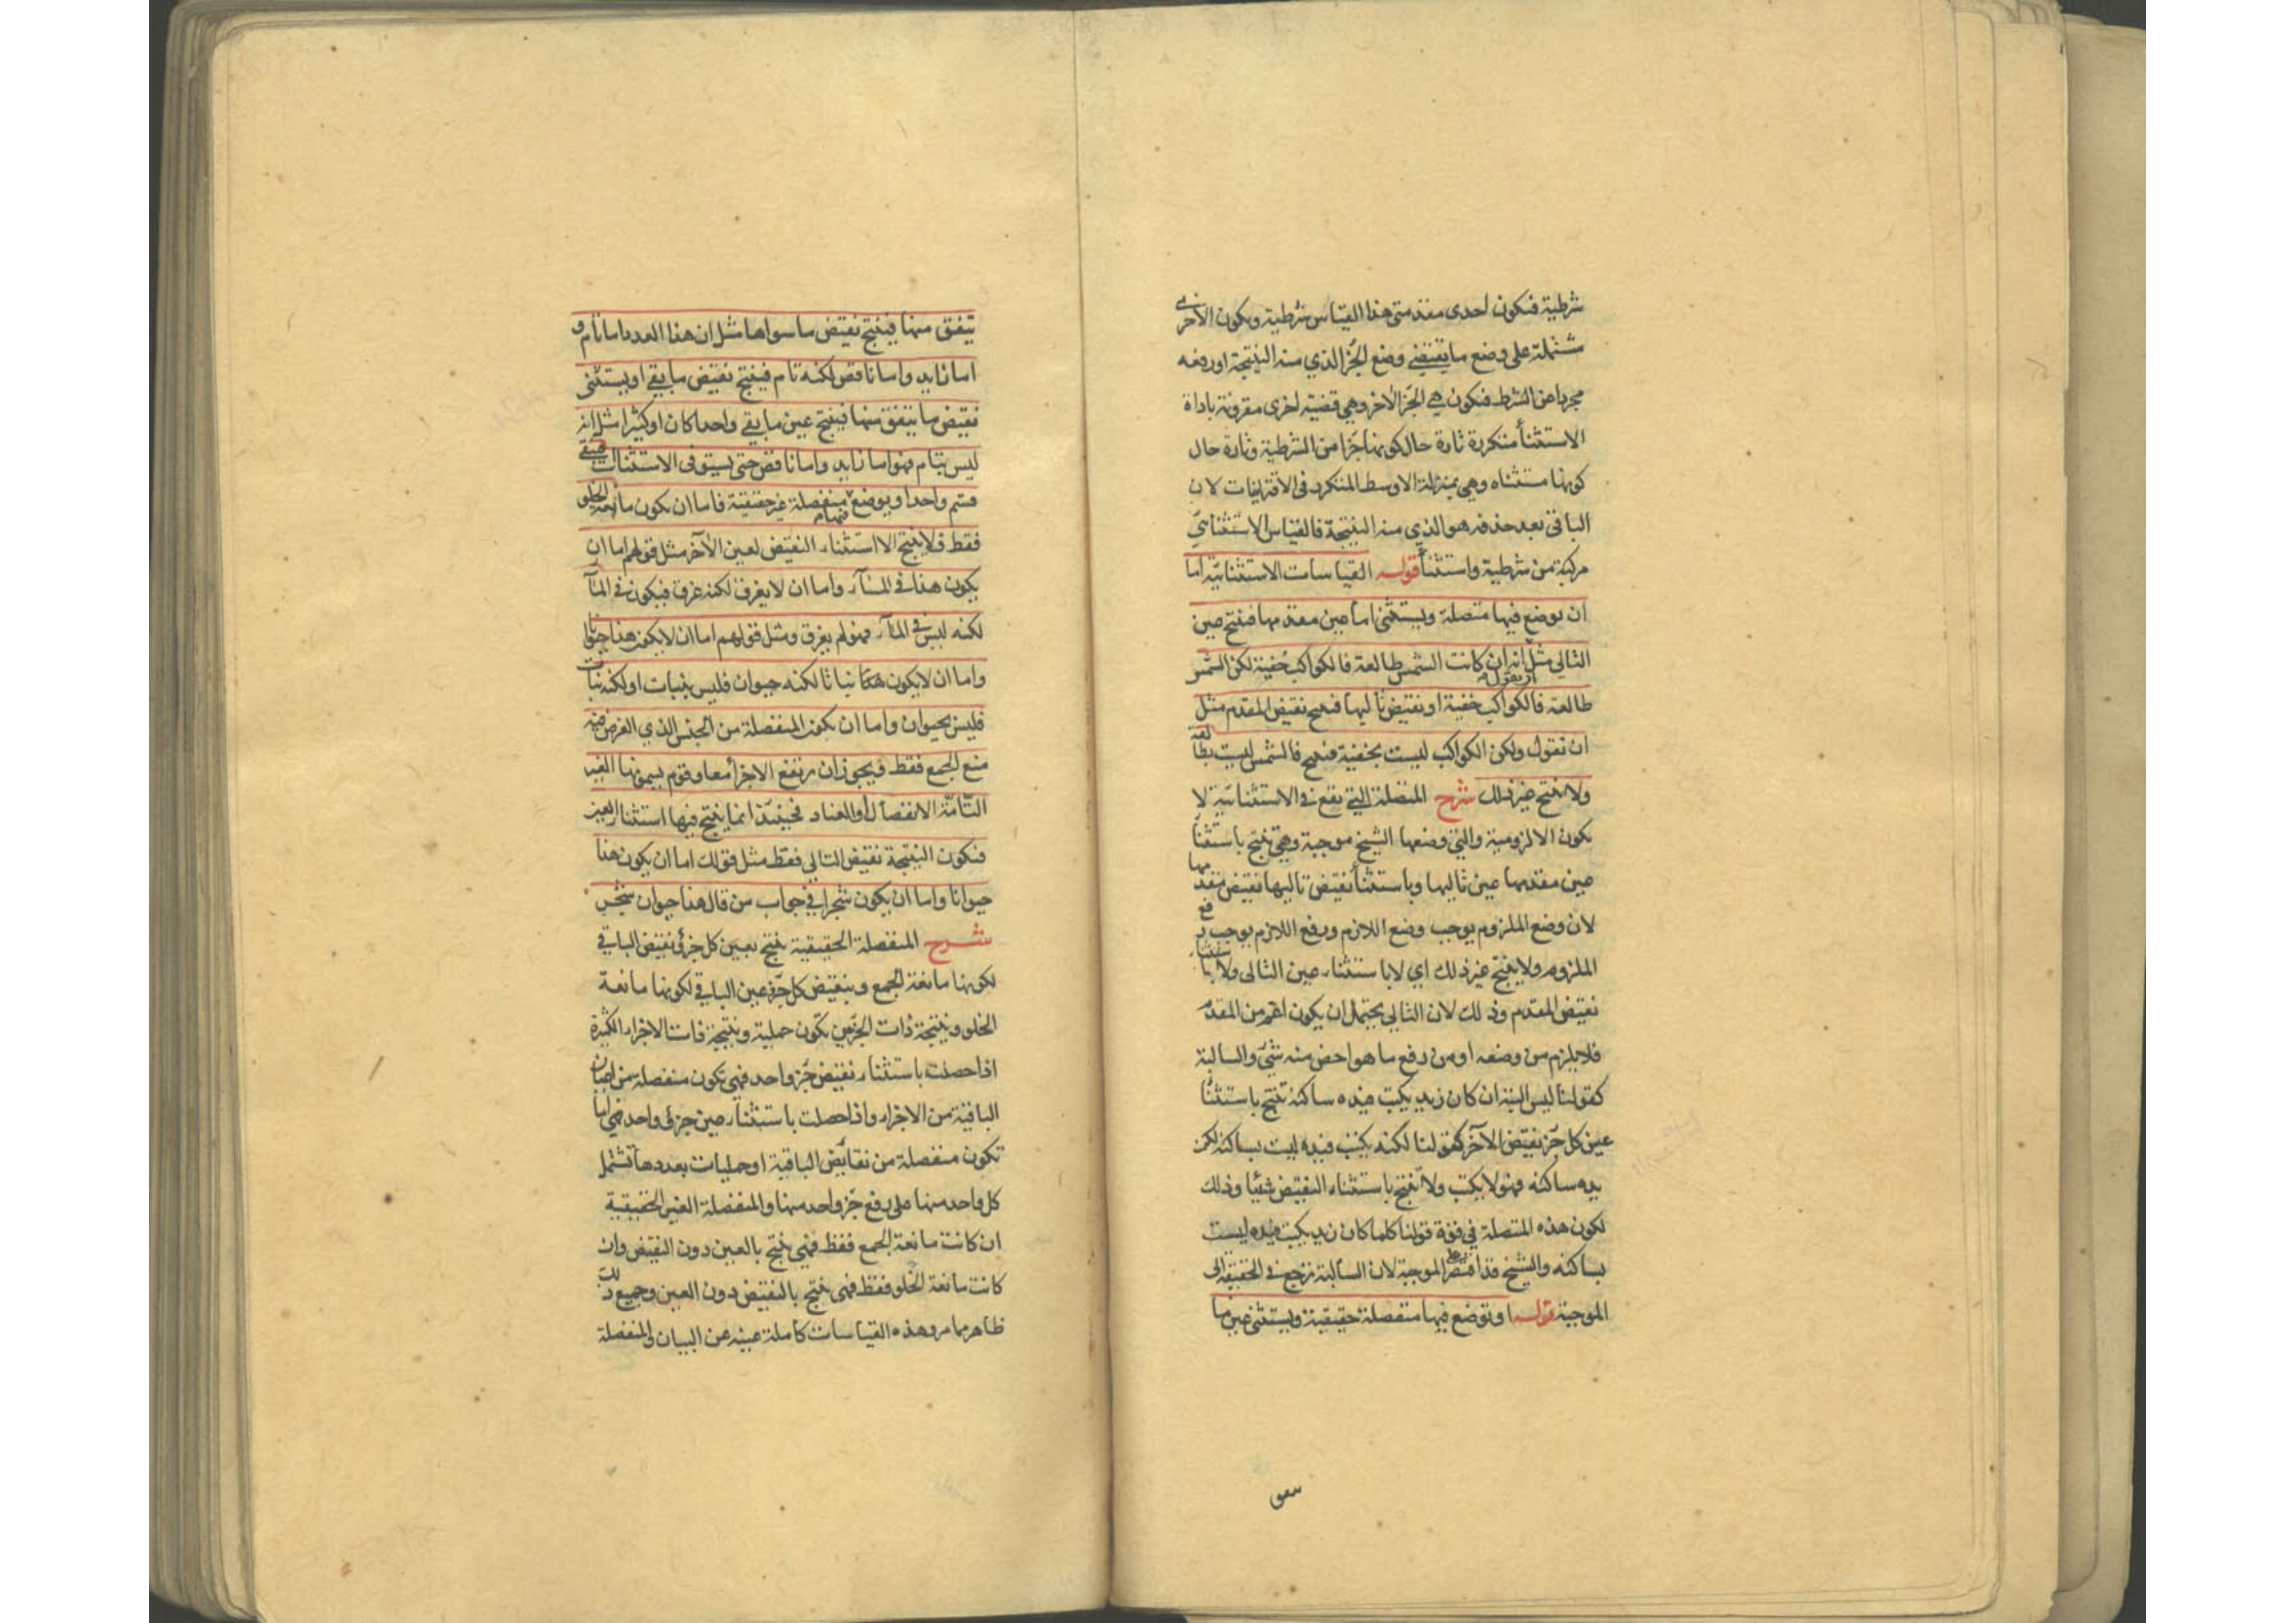 شرطية فتكون احدى مقدمتى هذا القياس شرطية ويكون الاخرى
مشتملة على وضع ما يقتضى وضع الجزء الذي منه النتيجة او رفعه
مجردا عن الشرط فتكون هي الجزء الاخر وهي قضية اخرى مقرونة باداة
الاستثنأ متكررة تارة حال كونها جزأ من الشرطية وتارة حال
كونها مستثناه وهي بمنزلة الاوسط المتكرر فى الاقترانيات لان
الباقى بعد حذفه هو الذي منه النتيجة فالقياس الاستثنائي
مركبة من شرطية واستثنأ قوله القياسات الاستثنائية اما
ان يوضع فيها متصلة ويستثنى اما عين مقدمها فينتج عين
التالي مثل انه ان كانت الشمس طالعة فالكواكب خفية لكن الشمس
طالعة فالكواكب خفية او نقيض تاليها فينتج نقيض المقدم مثل
ان تقول ولكن الكواكب ليست بخفية فينتج فالشمس ليست بطالعة
ولا ينتج غير ذلك شرح المتصلة التي تقع في الاستثنائية لا
يكون الا لزومية والتي وضعها الشيخ موجبة وهي تنتج باستثنأ
عين مقدمها عين تاليها وباستثنأ نقيض تاليها نقيض مقدمها
لان وضع الملزوم يوجب وضع اللازم ورفع اللازم يوجب رفع
الملزوم ولا ينتج غير ذلك اي لا باستثناء عين التالى ولا باستثناء
نقيض المقدم وذلك لان التالى يحتمل ان يكون اعم من المقدم
فلا يلزم من وضعه او من رفع ما هو اخص منه شئ والسالبة
كقولنا ليس البتة ان كان زيد يكتب فيده ساكنة تنتج باستثنأ
عين كل جزء نقيض الآخر كقولنا لكنه يكتب فيده ليست بساكنة لكن
يده ساكنة فهو لا يكتب ولا تنتج باستثناء النقيض شيئا وذلك
لكون هذه المتصلة في قوة قولنا كلما كان زيد يكتب فيده ليست
بساكنة والشيخ قد اقتصر على الموجبة لان السالبة ترجع في الحقيقة الى
الموجبة قوله او توضع فيها منفصلة حقيقية ويستثنى عين ما
يتفق منها فينتج نقيض ما سواها مثل ان هذا العدد اما تام و
اما زايد واما ناقص لكنه تام فينتج نقيض ما بقى او يستثنى
نقيض ما يتفق منها فينتج عين ما بقى واحدا كان او كثيرا مثل انه
ليس بتام فهو اما زايد واما ناقص حتى يستوفى الاستثناآت فيبقى
قسم واحد او يوضع فيها منفصلة غير حقيقية فاما ان يكون مانعة الخلو
فقط فلا ينتج الا استثناء النقيض لعين الآخر مثل قولهم اما ان
يكون هذا في المآء واما ان لا يغرق لكنه غرق فيكون في المآء
لكنه ليس في المآء فهو لم يغرق ومثل قولهم اما ان لا يكون هذا حيوانا
واما ان لا يكون نباتا لكنه حيوان فليس بنبات او لكنه نبات
فليس بحيوان واما ان يكون المنفصلة من الجنس الذي الغرض منه
منع الجمع فقط ويجوز ان يرتفع الاجزأ معا وقوم يسمونها الغير
التامة الانفصال او العناد فحينئذ انما ينتج فيها استثناء العين
فتكون النتيجة نقيض التالى فقط مثل قولك اما ان يكون هذا
حيوانا واما ان يكون شجرا في جواب من قال هذا حيوان شجر
شرح المنفصلة الحقيقية ينتج بعين كل جزئ نقيض الباقي
لكونها مانعة الجمع وبنقيض كل جزء عين الباقي لكونها مانعة
الخلو ونتيجة ذات الجزئين يكون حملية ونتيجة ذات الاجزاء الكثيرة
اذا حصلت باستثناء نقيض جزء واحد فهي تكون منفصلة من اعيان
الباقية من الاجزاء واذا حصلت باستثناء عين جزئ واحد فهي اما
تكون منفصلة من نقائض الباقية او حمليات بعددها تشتمل
كل واحد منها على رفع جزء واحد منها والمنفصلة الغير الحقيقية
ان كانت مانعة الجمع فقط فهي ينتج بالعين دون النقيض وان
كانت مانعة الخلو فقط فهى ينتج بالنقيض دون العين وجميع ذلك
ظاهر مما مر وهذه القياسات كاملة غنية عن البيان والمنفصلة